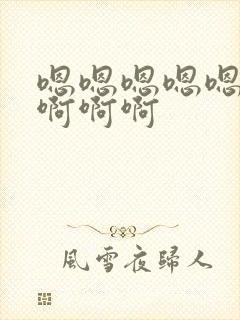 嗯嗯嗯嗯嗯
啊啊啊
風雪夜歸人